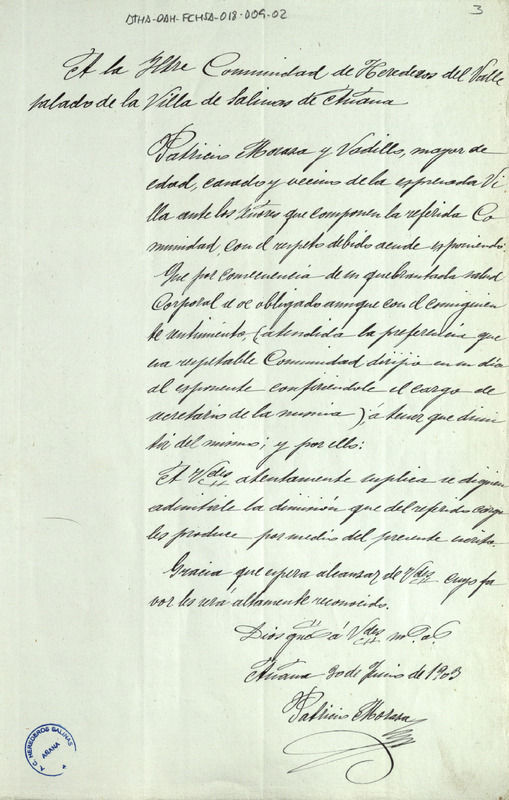 ATHA-DAH-FCHSA-018-009-02
3
A la Iltre Comunidad de Herederos del Valle
salado de la Villa de Salinas de Añana
Patricio Moraza y Vadillo, mayor de
edad, casado y vecino de la espresada Vi-
lla ante los Señores que componen la referida Co
munidad, con el respeto debido acude esponiendo:
Que por consecuencia de su quebrantada salud
corporal se ve obligado aunque con el consiguien
te sentimiento, (atendida la preferencia que
esa respetable Comunidad dirijio en un dia
al esponente confiriendole el cargo de
secretario de la misma), á tener que dimi
tir del mismo; y por ello:
A Vdes atentamente suplica se dignen
admitirle la dimisión que del referido cargo
les produce por medio del presente escrito.
Gracia que espera alcanzar de Vdes cuyo fa
vor les será altamente reconocido.
Dios gue á Vdes ms. as.
Añana 30 de Junio de 1903
Patricio Moraza
C. HEREDEROS SALINAS
AÑANA